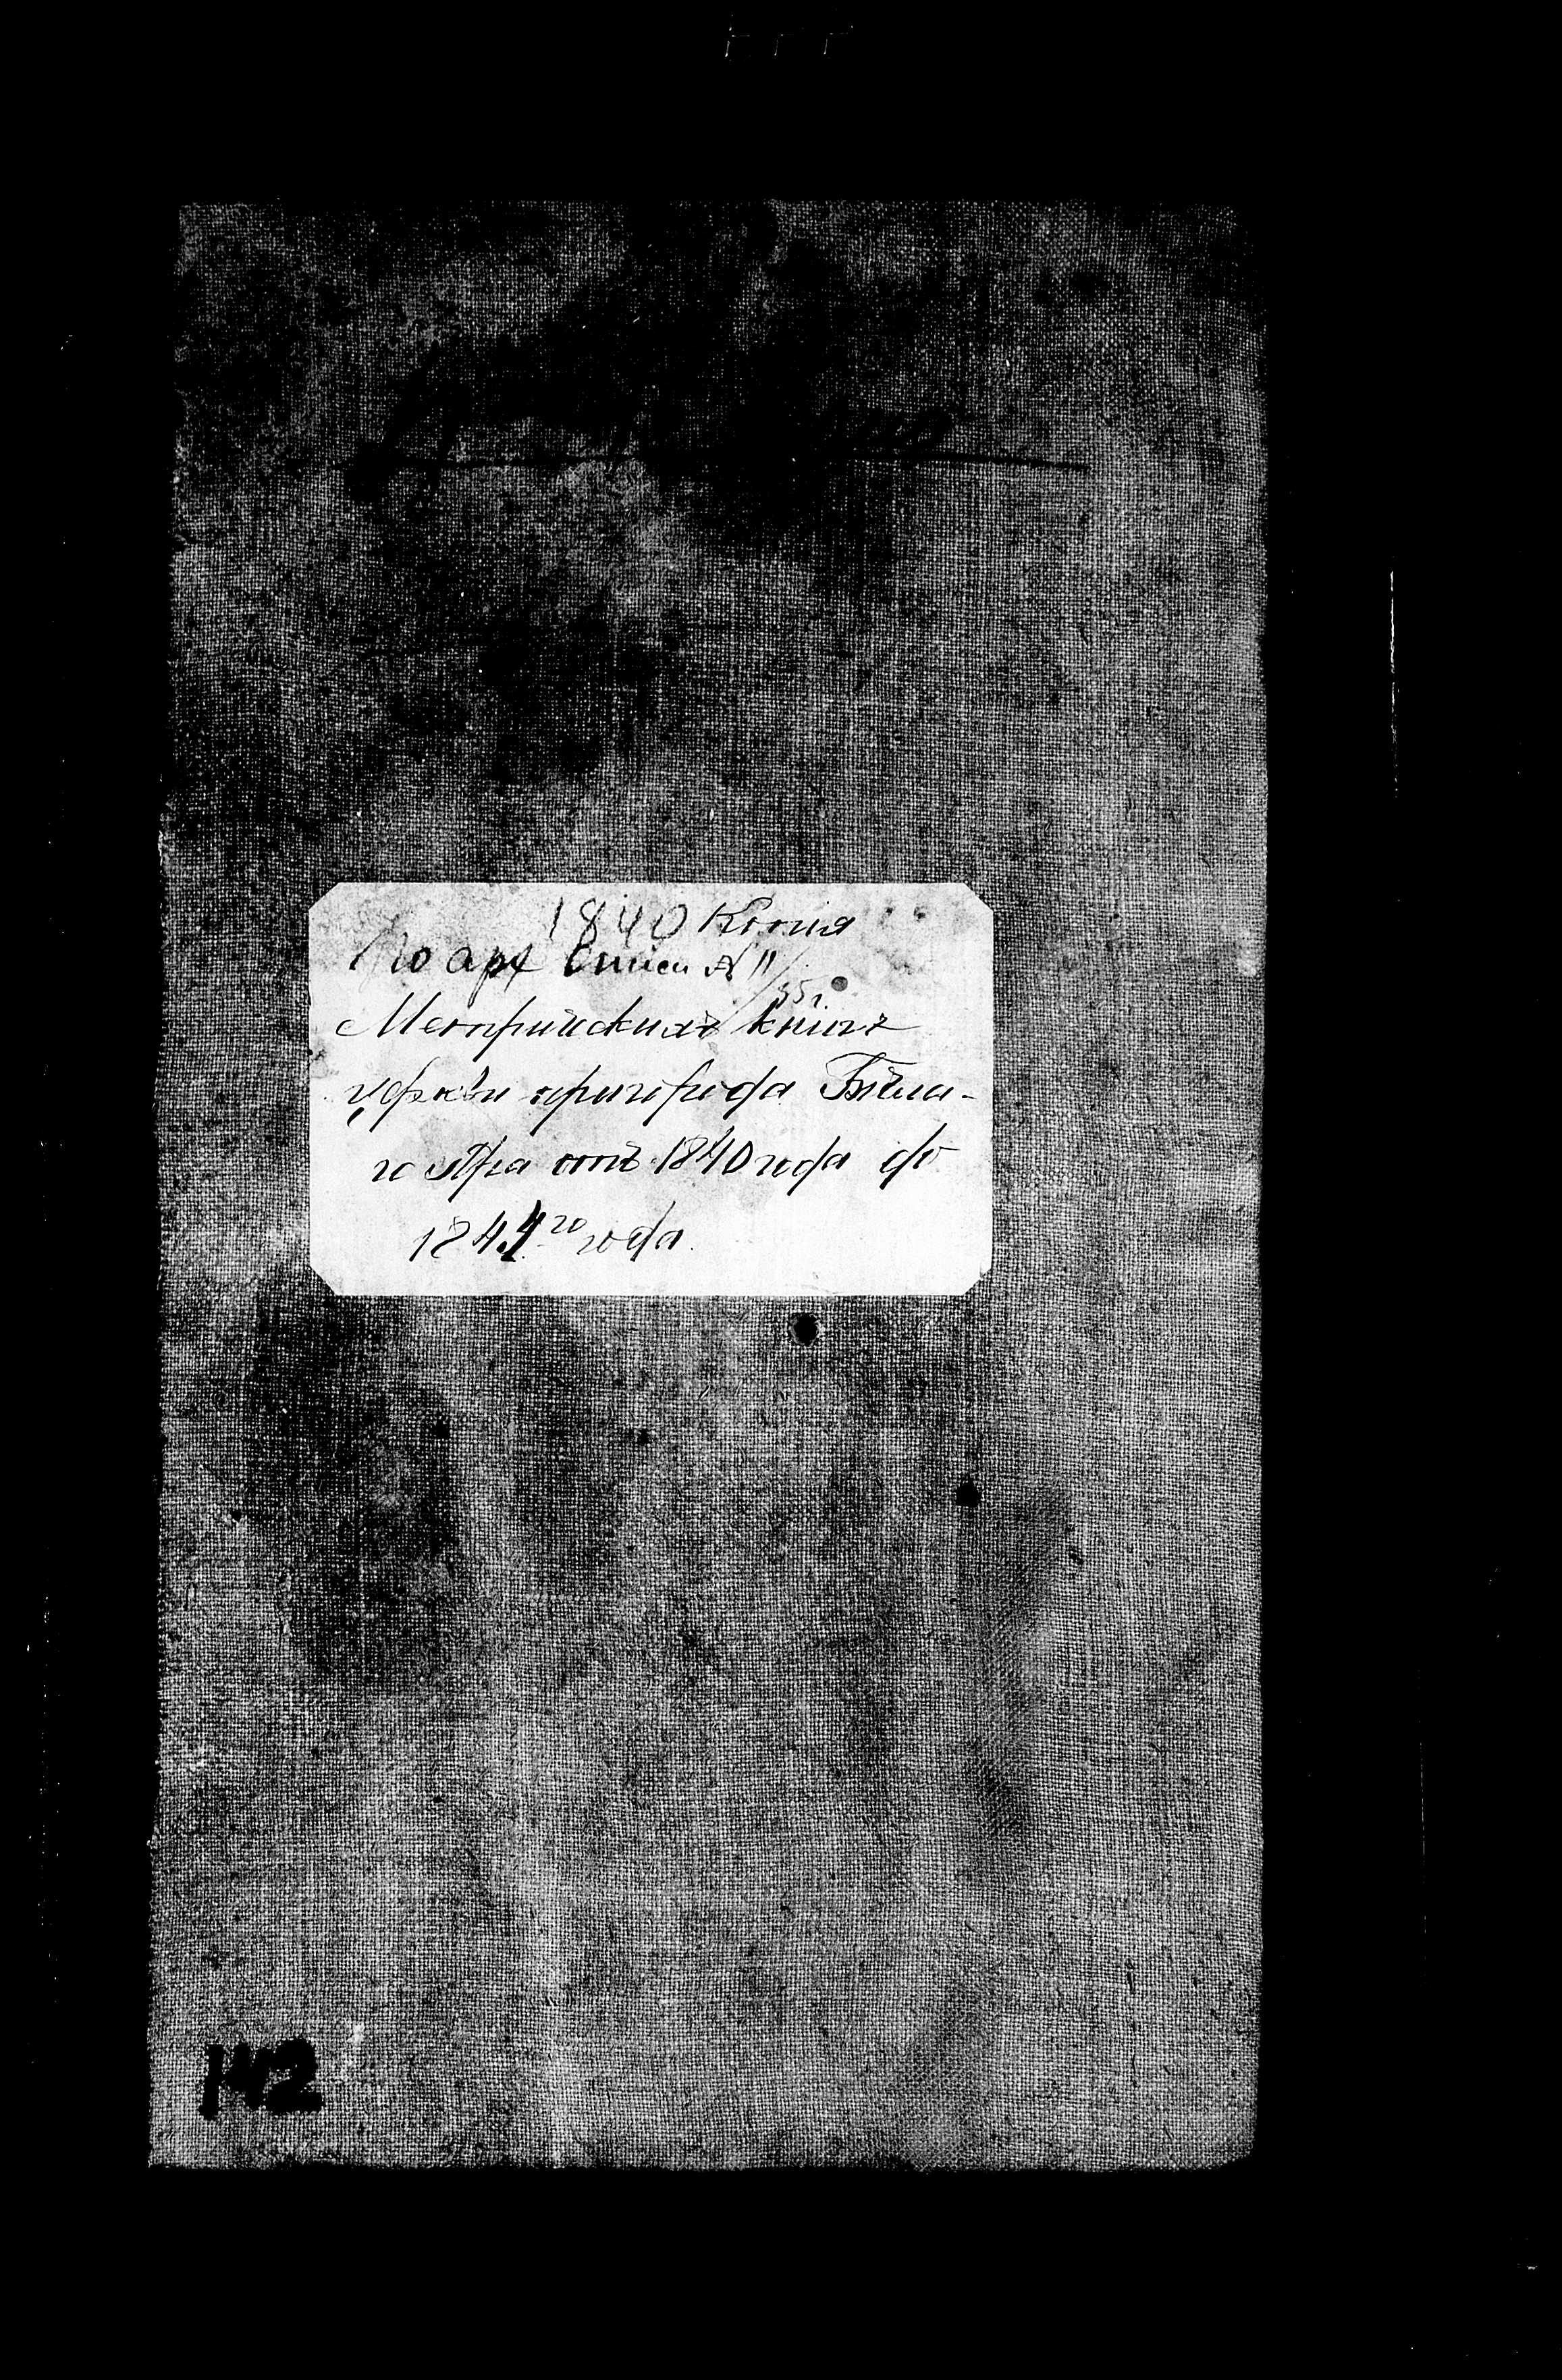 1840 Копия
По арх Описи № 11/
55 г.
Метрическихъ книгъ
церкви пригорода Бѣла-
го Яра отъ 1840 года до
1844го года
142